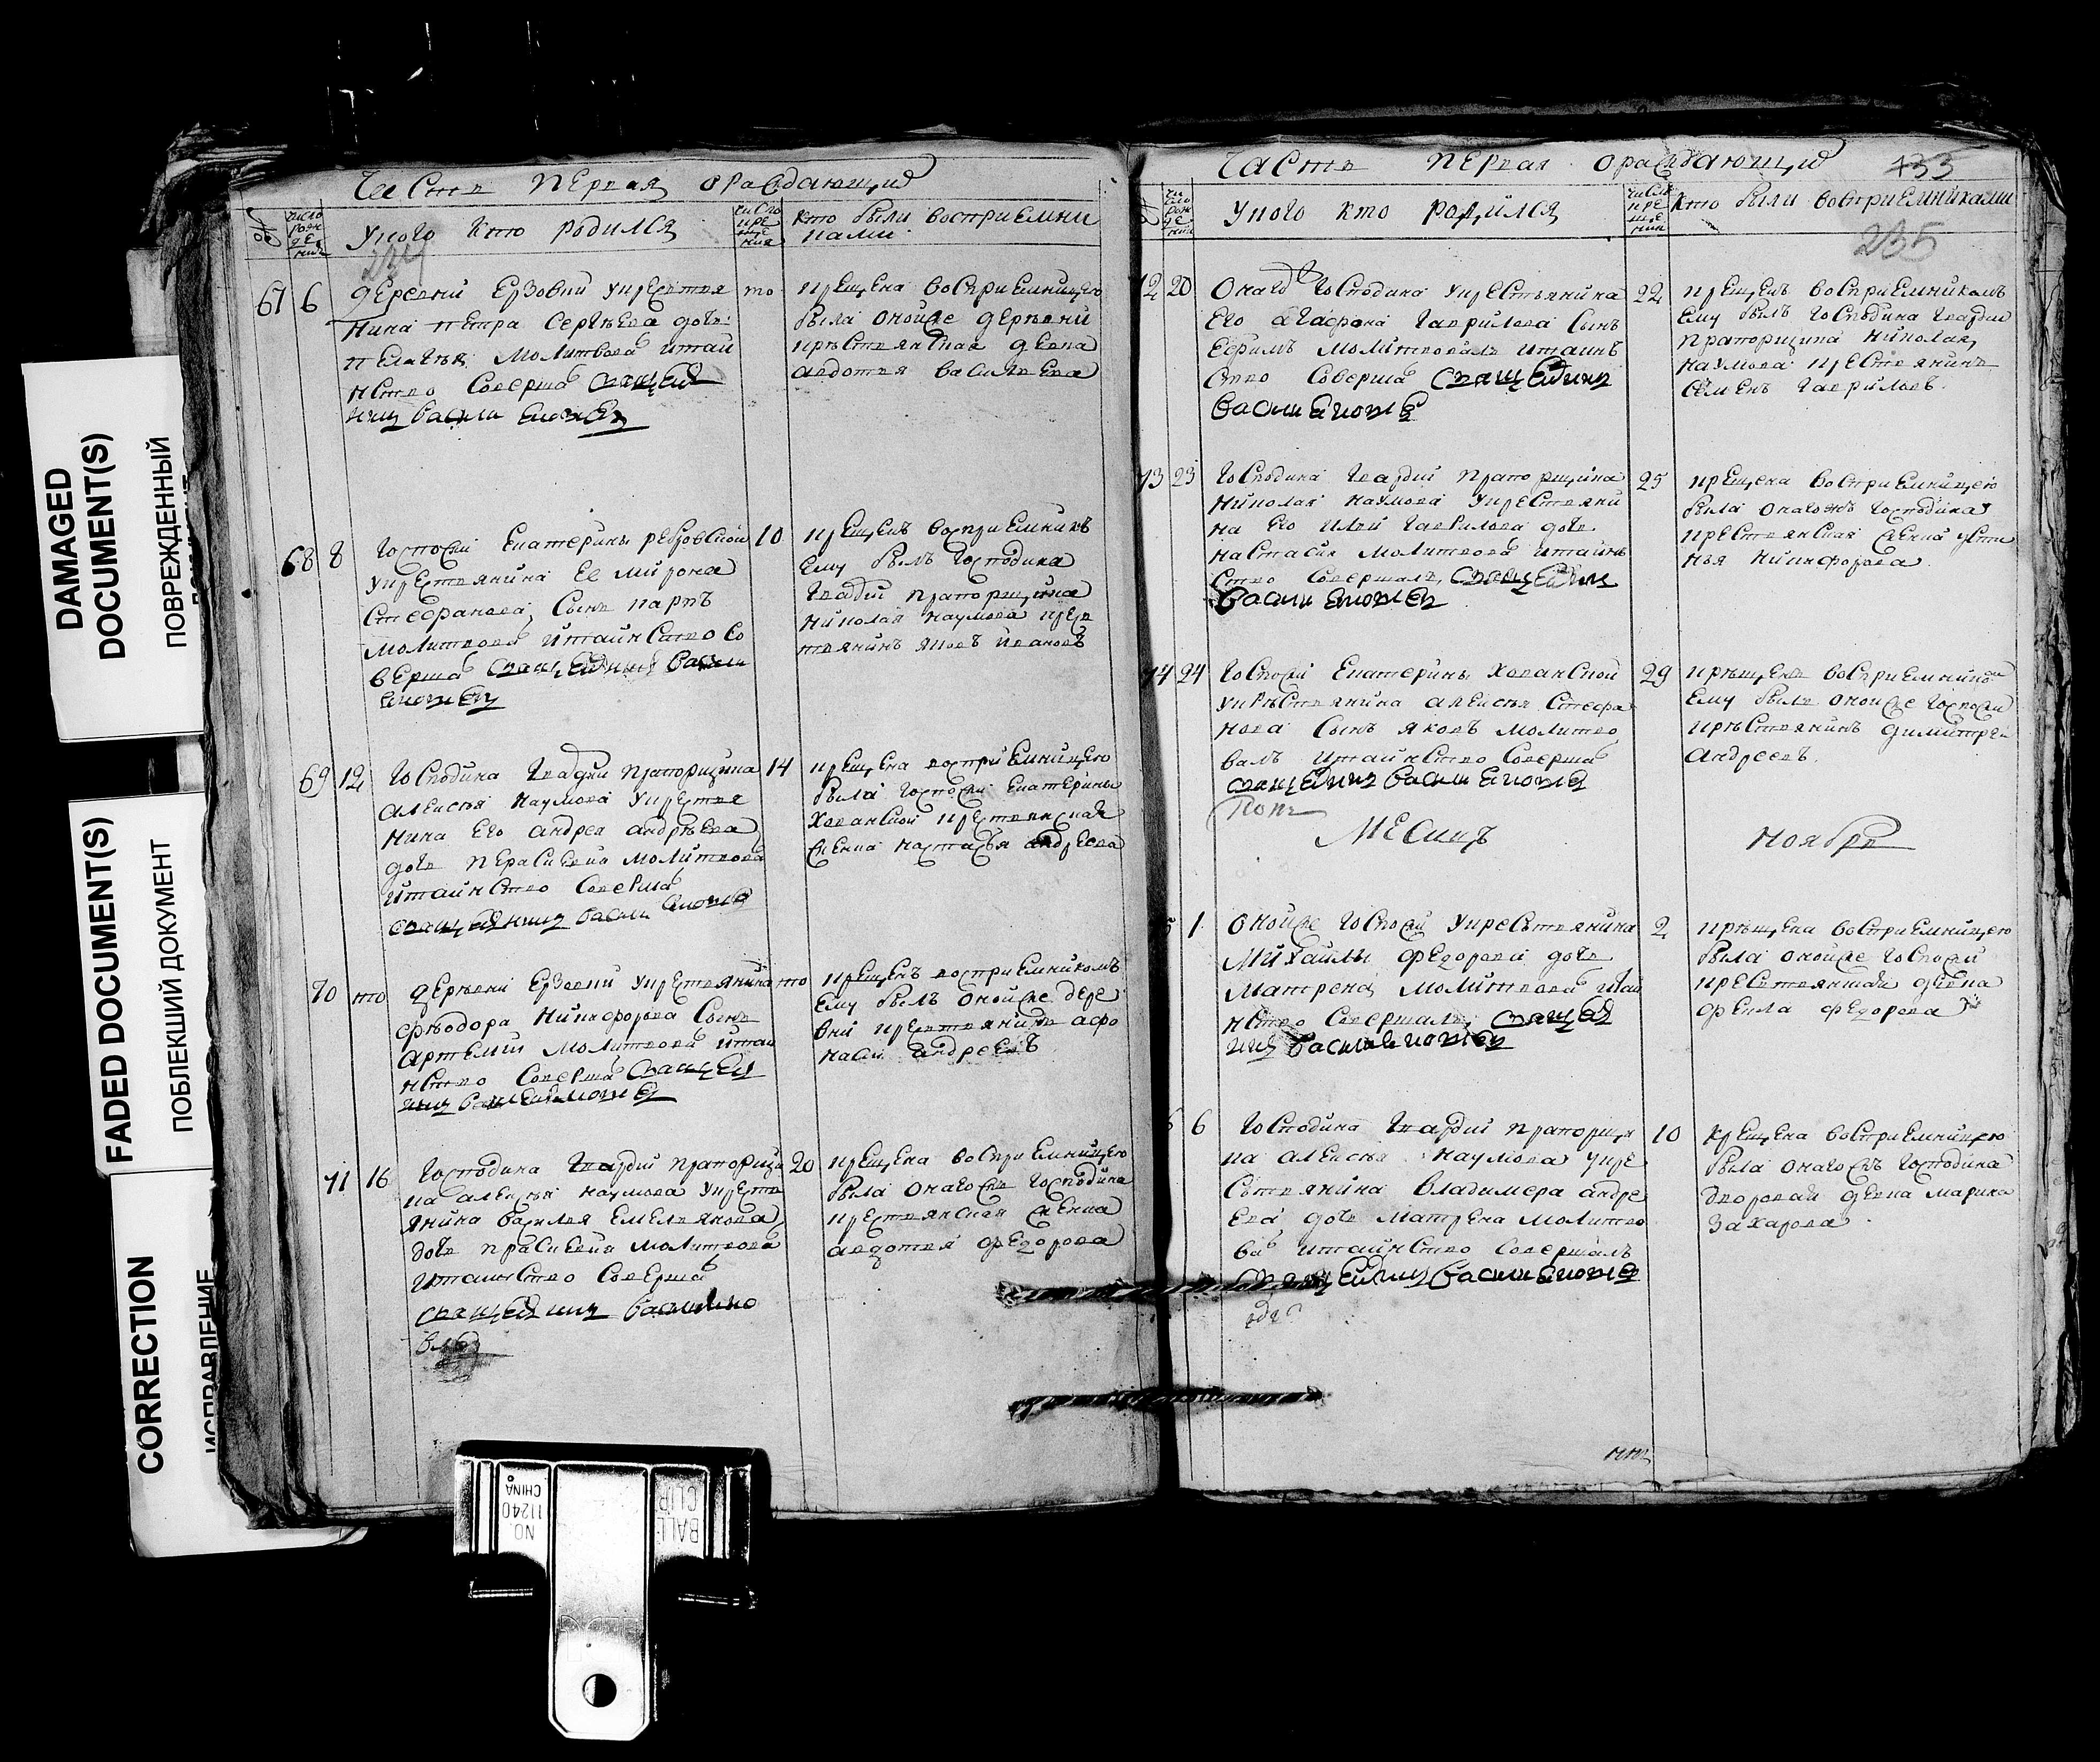 DAMAGED
DOCUMENT(S)
ПОВРЕЖДЕННЫЙ
FADED DOCUMENT(S)
ПОБЛЕКШИЙ ДОКУМЕНТ
CORRECTION
ИСПРАВЛЕНИЕ
Часть первая ораждающи
число рождения
У кого кто родился
число крещения
кто были восприемни
ками
234
67 6
деревни Ерзовки у крестья
то
нина петра сергѣева дочь
пелагѣя молитвова и таи
нство соверша священ
ник васили
крещена восприемницею
была оной же деревни
крестьянская девка
авдотья васильева
68 8
Госпожи Екатерины ребровской
10
у крестьянина ее мирона
стефанова сынъ карпъ
молитвова и таинство со
верша священникъ васили
крещенъ восприемникъ
ему былъ господина
гвардіи прапорщика
николая наумова крес
тьянинъ яковъ ивановъ
69 12
господина гвардіи прапорщика
14
алексѣя наумова у крестья
нина его андрея андрѣева
дочь параскевия молитвова
и таинство соверша
священникъ васили
крещена восприемницею
была госпожи екатерины
хованской крестьянская
женка настасья андреева
70 то
деревни Ерзовки у крестьянина
то
ѳьодора никифорова сынъ
артемии молитвова и таи
нство соверша священ
никъ васили
крещенъ восприемникомъ
ему былъ оной же дере
вни крестьянинъ афо
наси андреевъ
71 16
господина гвардіи прапорщи
20
ка алексѣя наумова у крестя
янина василья емельянова
дочь праскевия молитвова
и таинство соверша
священникъ васили
крещена восприемницею
была онагожъ господина
крестьянская женка
авдотья федорова
Часть первая ораждающи
133
число рождения
У кого кто родился
число крещения
кто были восприемниками
235
72 20
онагожъ господина у крестьянина
22
его агафона гаврилова сынъ
ефимъ молитвовалъ и таинъ
ство соверша священникъ
васили
крещенъ восприемникомъ
ему былъ господина гвардіи
прапорщика николая
наумова крестьянинъ
семенъ гавриловъ.
73 23
господина гвардіи прапорщика
25
николая наумова у крестьяни
на его ильи гаврилова дочь
настасия молитвова и таинъ
ство совершалъ священникъ
васили
крещена восприемницею
была онагожъ господина
крестьянская женка усти
нья никифорова
74 24
госпожи екатерины хованской
29
у крѣстьянина алексѣя стефа
нова сынъ яковъ молитво
валъ и таинство соверша
священникъ васили
крѣщенъ восприемнико
ему былъ оной же госпожи
крѣстьянинъ димитрей
андреевъ.
Месяцъ
ноябрь
1
оной же госпожи у крестьянина
2
михаилы федорова дочь
матрена молитвова и таи
нство совершалъ священ
никъ васили
крѣщена восприемницею
была оной же госпожи
крестьянская девка
фекла федорова
6
господина гвардіи прапорщи
10
ка алексѣя наумова у кре
стьянина владимера андре
ева дочь матрена молитво
ва и таинство совершалъ
священникъ васили
крещена восприемницею
была онагожъ господина
дворовая девка марина
захарова.
NO.
11240
CHINA
BALL
CLIP